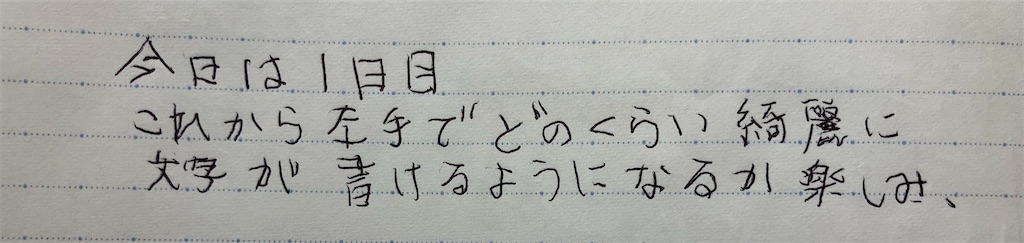 今日は1日目
これから左手でどのくらい綺麗に
文字が書けるようになるか楽しみ、